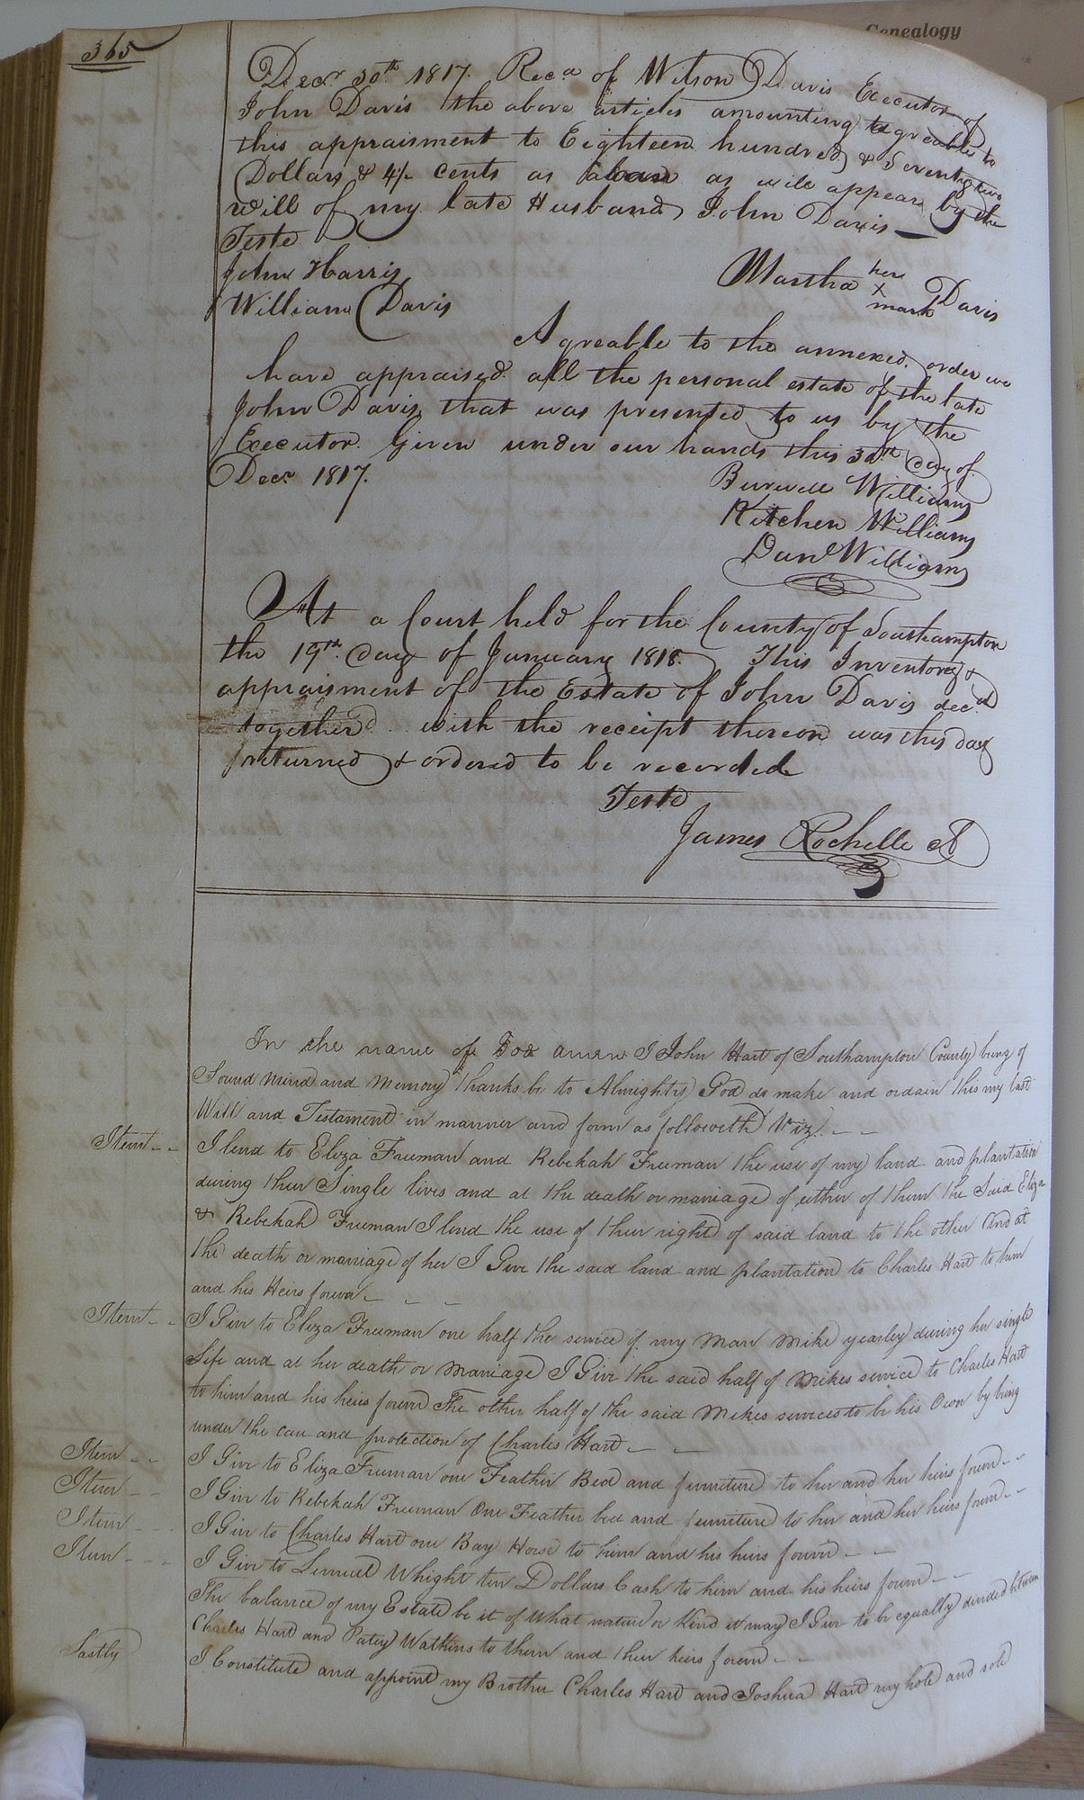 Genealogy
365
Decr. 30th 1817. Recd of Wilson Davis Executor of
John Davis the above articles amounting agreeable to
this appraisment to Eighteen hundred & Seventy two
Dollars & 4/- cents as above as will appear by the
will of my late Husband John Davis
Teste
John Harris
William Davis
Martha her Davis
x
mark
Agreable to the annexed order we
have appraised all the personal estate of the late
John Davis that was presented to us by the
Executor. Given under our hands this 30th day of
Decr. 1817.
Burwell Williams
Kitchen Williams
Danl Williams
At a Court held for the County of Southampton
the 19th day of January 1818. This Inventory &
appraisment of the Estate of John Davis decd
together with the receipt thereon was this day
returned & ordered to be recorded
Teste
James Rochelle
In the name of God amen I John Hart of Southampton County being of
Sound mind and Memory thanks be to Almighty God do make and ordain this my last
Will and Testament in manner and form as followeth Viz. - -
Item - - I lend to Eliza Freeman and Rebekah Freeman the use of my land and plantation
during their Single lives and at the death or mariage of either of them the Said Eliza
& Rebekah Freeman I lend the use of their right of said land to the other and at
the death or mariage of her I Give the said land and plantation to Charles Hart to him
and his Heirs forever - - -
Item - - I Give to Eliza Freeman one half the service of my Man Mike yearley during her single
life and at her death or Mariage I Give the said half of Mikes service to Charles Hart
to him and his heirs forever The other half of the said Mikes services to be his Own by being
under the care and protection of Charles Hart - -
Item - - I Give to Eliza Freeman one Feather Bed and furniture to her and her heirs forever - -
Item - - I Give to Rebekah Freeman One Feather bed and furniture to her and her heirs forever - -
Item - - I Give to Charles Hart one Bay Horse to him and his heirs forever - -
Item - - - I Give to Lemuel Whight ten Dollars Cash to him and his heirs forever - -
The balance of my Estate be it of what nature or Kind it may I Give to be equally divided between
Charles Hart and Patsy Watkins to them and their heirs forever - -
Lastly I Constitute and appoint my Brother Charles Hart and Joshua Hart my hole and sole